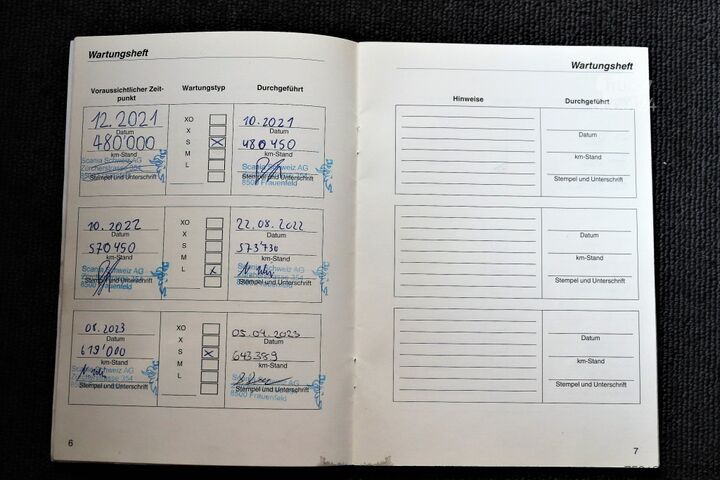 Wartungsheft
Voraussichtlicher Zeit-
punkt
Wartungstyp
Durchgeführt
12.2021
Datum
480'000
km-Stand
Scania Schweiz AG
Zürcherstrasse 354
Stempel und Unterschrift
XO
X
S
M
L
10.2021
Datum
480450
km-Stand
Scania Schweiz AG
Stempel und Unterschrift
8500 Frauenfeld
10.2022
Datum
570450
km-Stand
Scania Schweiz AG
Stempel und Unterschrift
8500 Frauenfeld
XO
X
S
M
L
22.08.2022
Datum
573'730
km-Stand
Scania Schweiz AG
Zürcherstrasse 354
Stempel und Unterschrift
8500 Frauenfeld
08.2023
Datum
619'000
km-Stand
Scania Schweiz AG
Zürcherstrasse 354
Stempel und Unterschrift
XO
X
S
M
L
05.04.2023
Datum
643389
km-Stand
Stempel und Unterschrift
8500 Frauenfeld
6
Wartungsheft
Hinweise
Durchgeführt
Datum
km-Stand
Stempel und Unterschrift
Datum
km-Stand
Stempel und Unterschrift
Datum
km-Stand
Stempel und Unterschrift
7